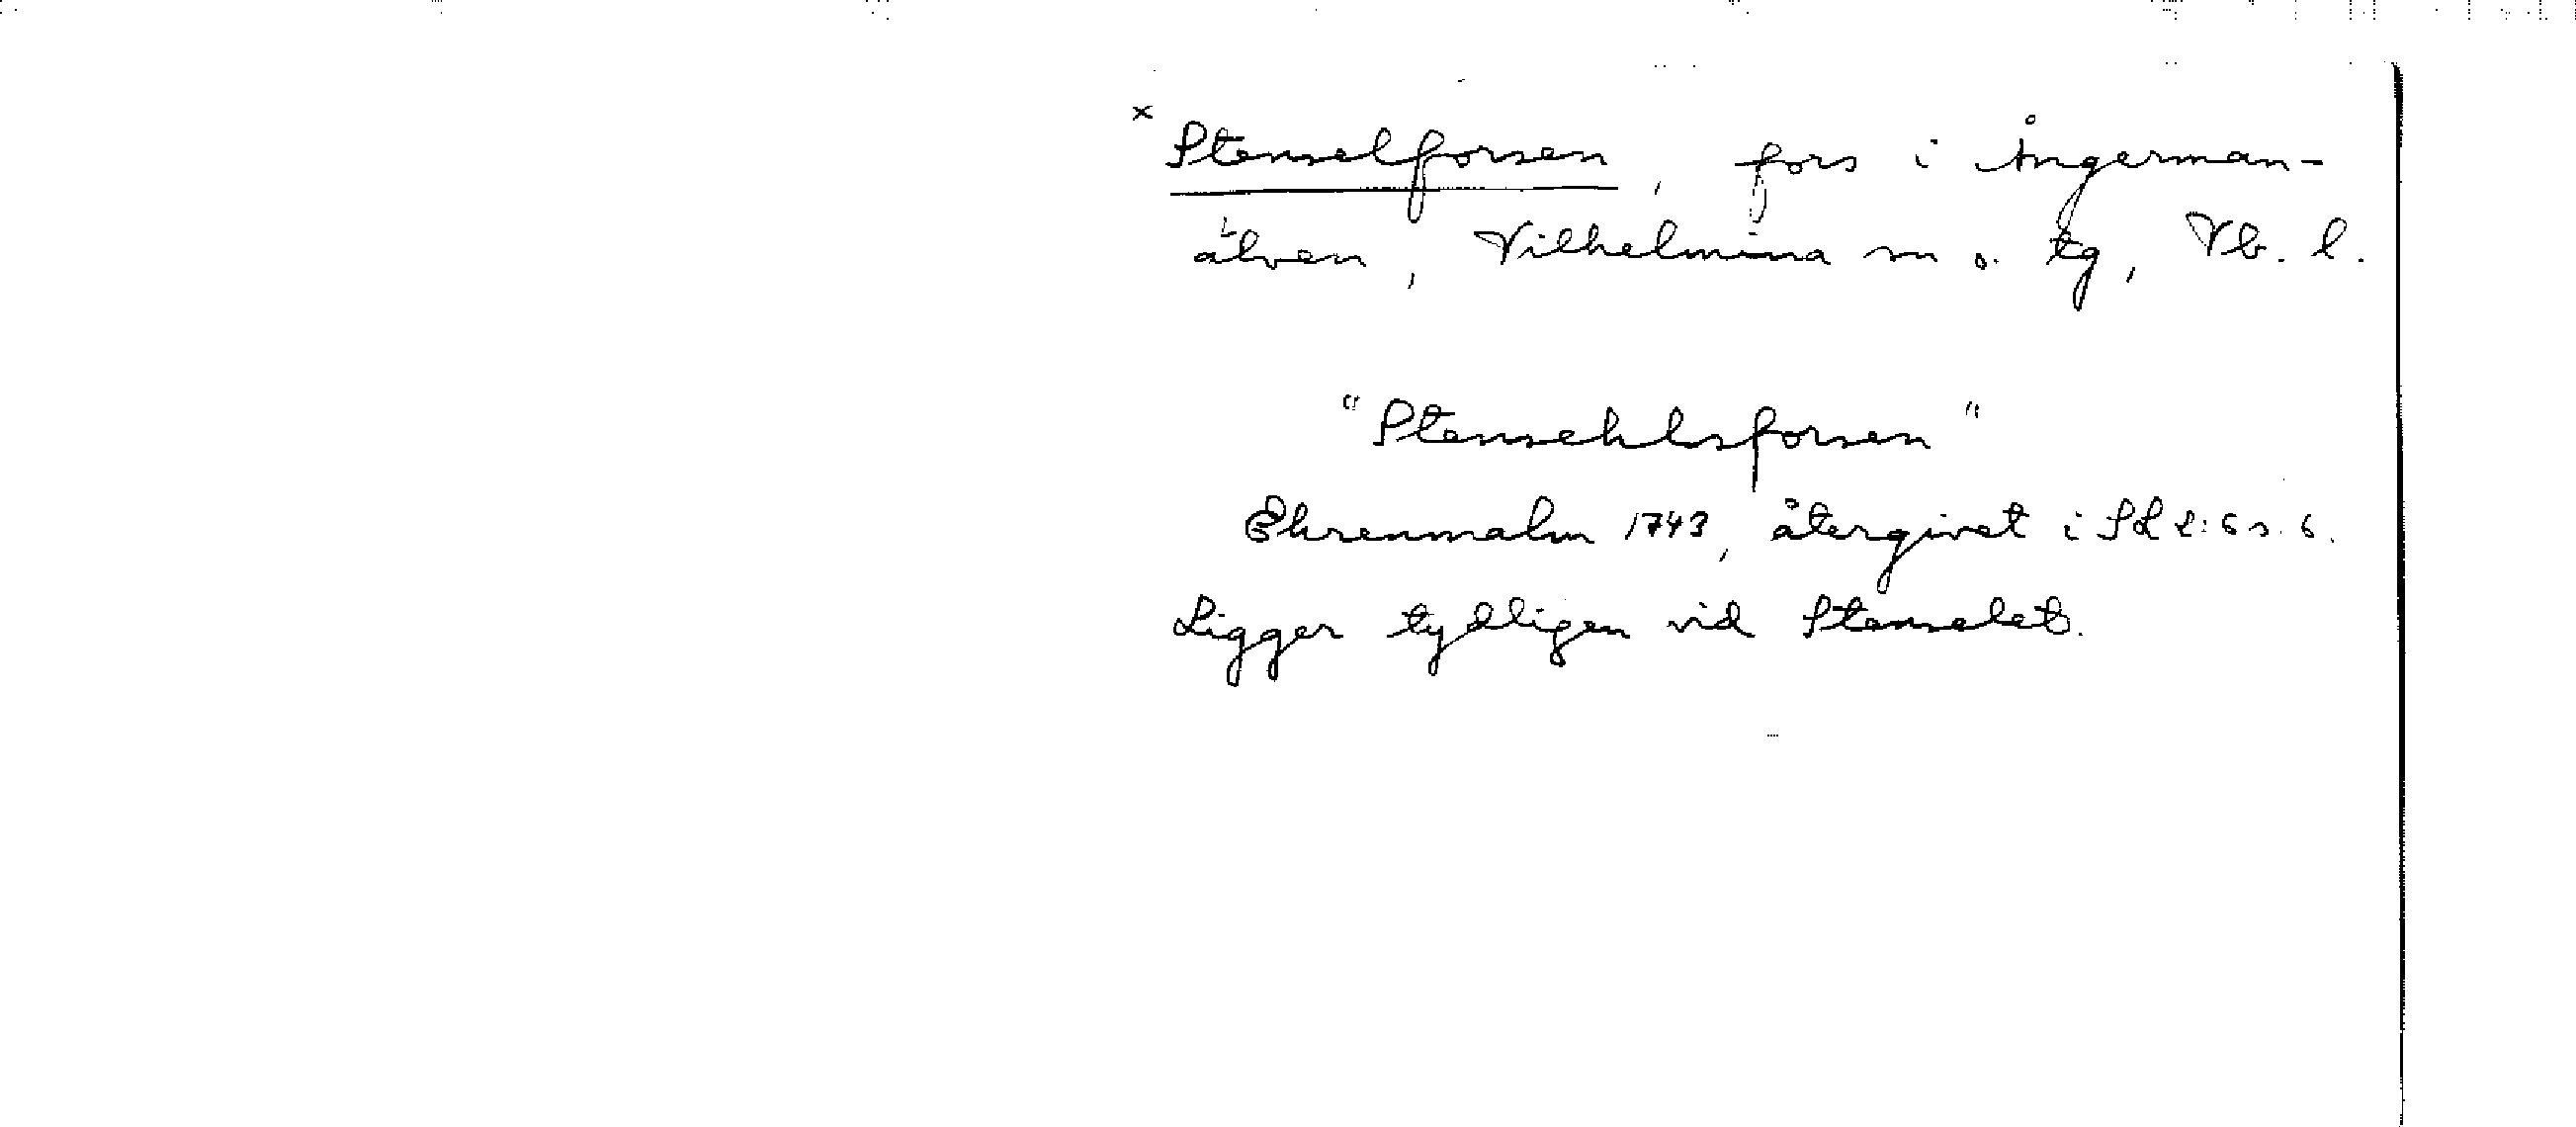 x Stenselforsen, fors i Ångerman-
älven, Vilhelmina sn o. tg, Vb. l.
"Stensehlsforsen"
Ehrenmalm 1743, återgivet i SL 2:6 s. 6.
Ligger tydligen vid Stenselet.